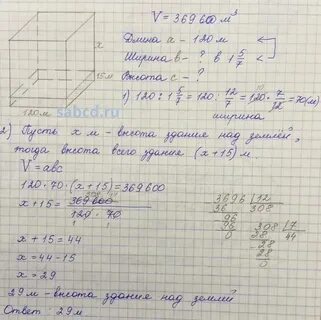 V = 369600 м³
Длина a - 120 м
Ширина b - ? в 1 5/7 <
Высота c - ?
x
15м
120м
sabcd.ru
1) 120 : 1 5/7 = 120 : 12/7 = 120 · 7/12 = 70(м)
ширина
2) Пусть x м - высота здание над землей,
тогда высота всего здание (x + 15) м.
V = abc
120 · 70 · (x + 15) = 369600
x + 15 = 369600 / 120 · 70
308 44
1 1
x + 15 = 44
x = 44 - 15
x = 29
3696 | 12
36 308
96
96
0
308 | 7
28 44
28
28
0
29 м - высота здание над землей
Ответ: 29 м